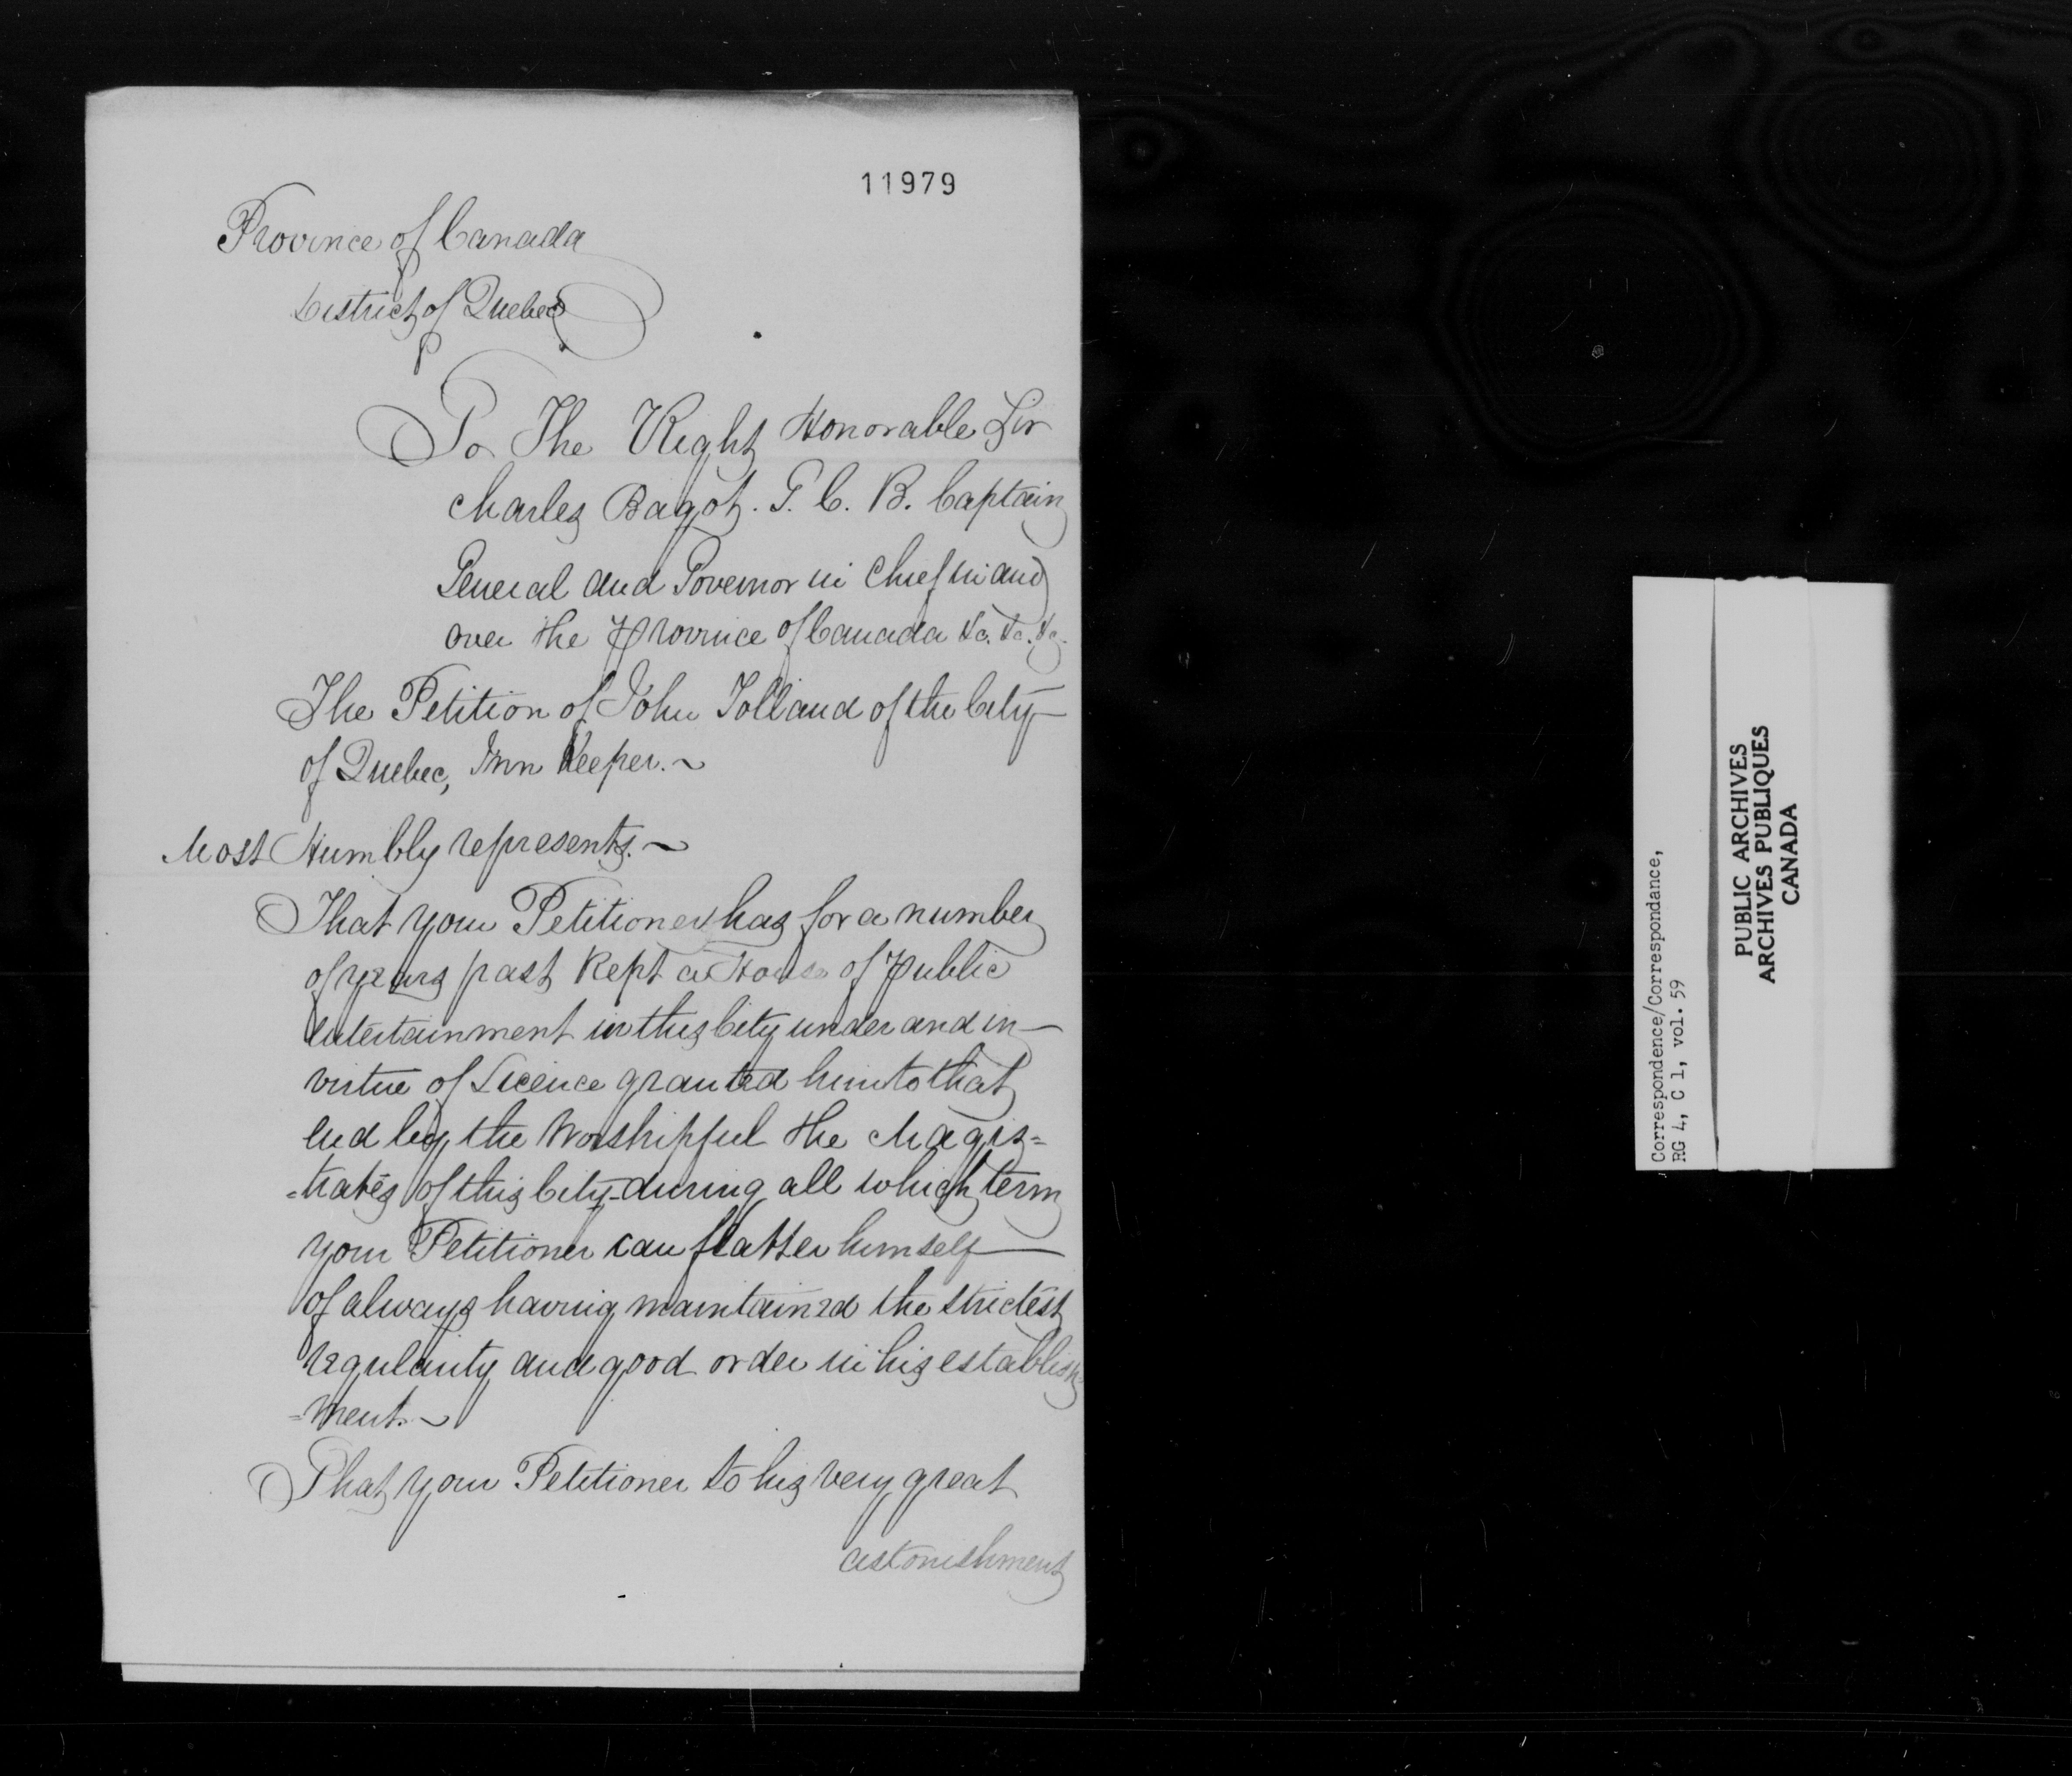 11979
Province of Canada
District of Quebec
To The Right Honorable Sir
Charles Bagot. G. C. B. Captain
General and Governor in Chief in and
over the Province of Canada &c. &c. &c.
The Petition of John Tolland of the City
of Quebec, Inn Keeper.~
Most Humbly represents.~
That your Petitioner has for a number
of years past Kept a House of Public
Entertainment in this City under and in
virtue of Licence granted him to that
End by the Worshipful the Magis=
=trates of this City during all which term
your Petitioner can flatter himself
of always having maintained the strictest
regularity and good order in his establish=
=ment.~
That your Petitioner to his very great
astonishment
Correspondence/Correspondance,
RG 4, C 1, vol. 59
PUBLIC ARCHIVES
ARCHIVES PUBLIQUES
CANADA